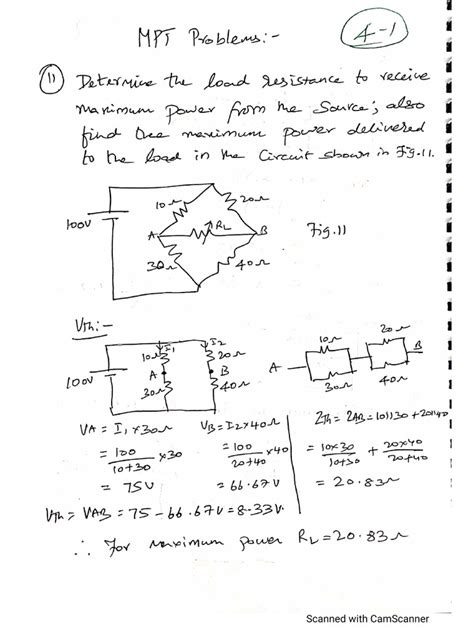 MPT Problems:-
4-1
(11) Determine the load resistance to receive
maximum power from the source; also
find the maximum power delivered
to the load in the circuit shown in Fig.11.
10Ω 20Ω
100V A RL B Fig.11
30Ω 40Ω
Vth:-
I1 I2
10Ω 20Ω 10Ω 20Ω
100V A B A B
30Ω 40Ω 30Ω 40Ω
VA = I1 × 30Ω VB = I2 × 40Ω Zth = ZAB = 10||30 + 20||40
= 100/(10+30) × 30 = 100/(20+40) × 40 = 10×30/(10+30) + 20×40/(20+40)
= 75V = 66.67V = 20.83Ω
Vth = VAB = 75 - 66.67V = 8.33V.
∴ For maximum power RL = 20.83Ω
Scanned with CamScanner